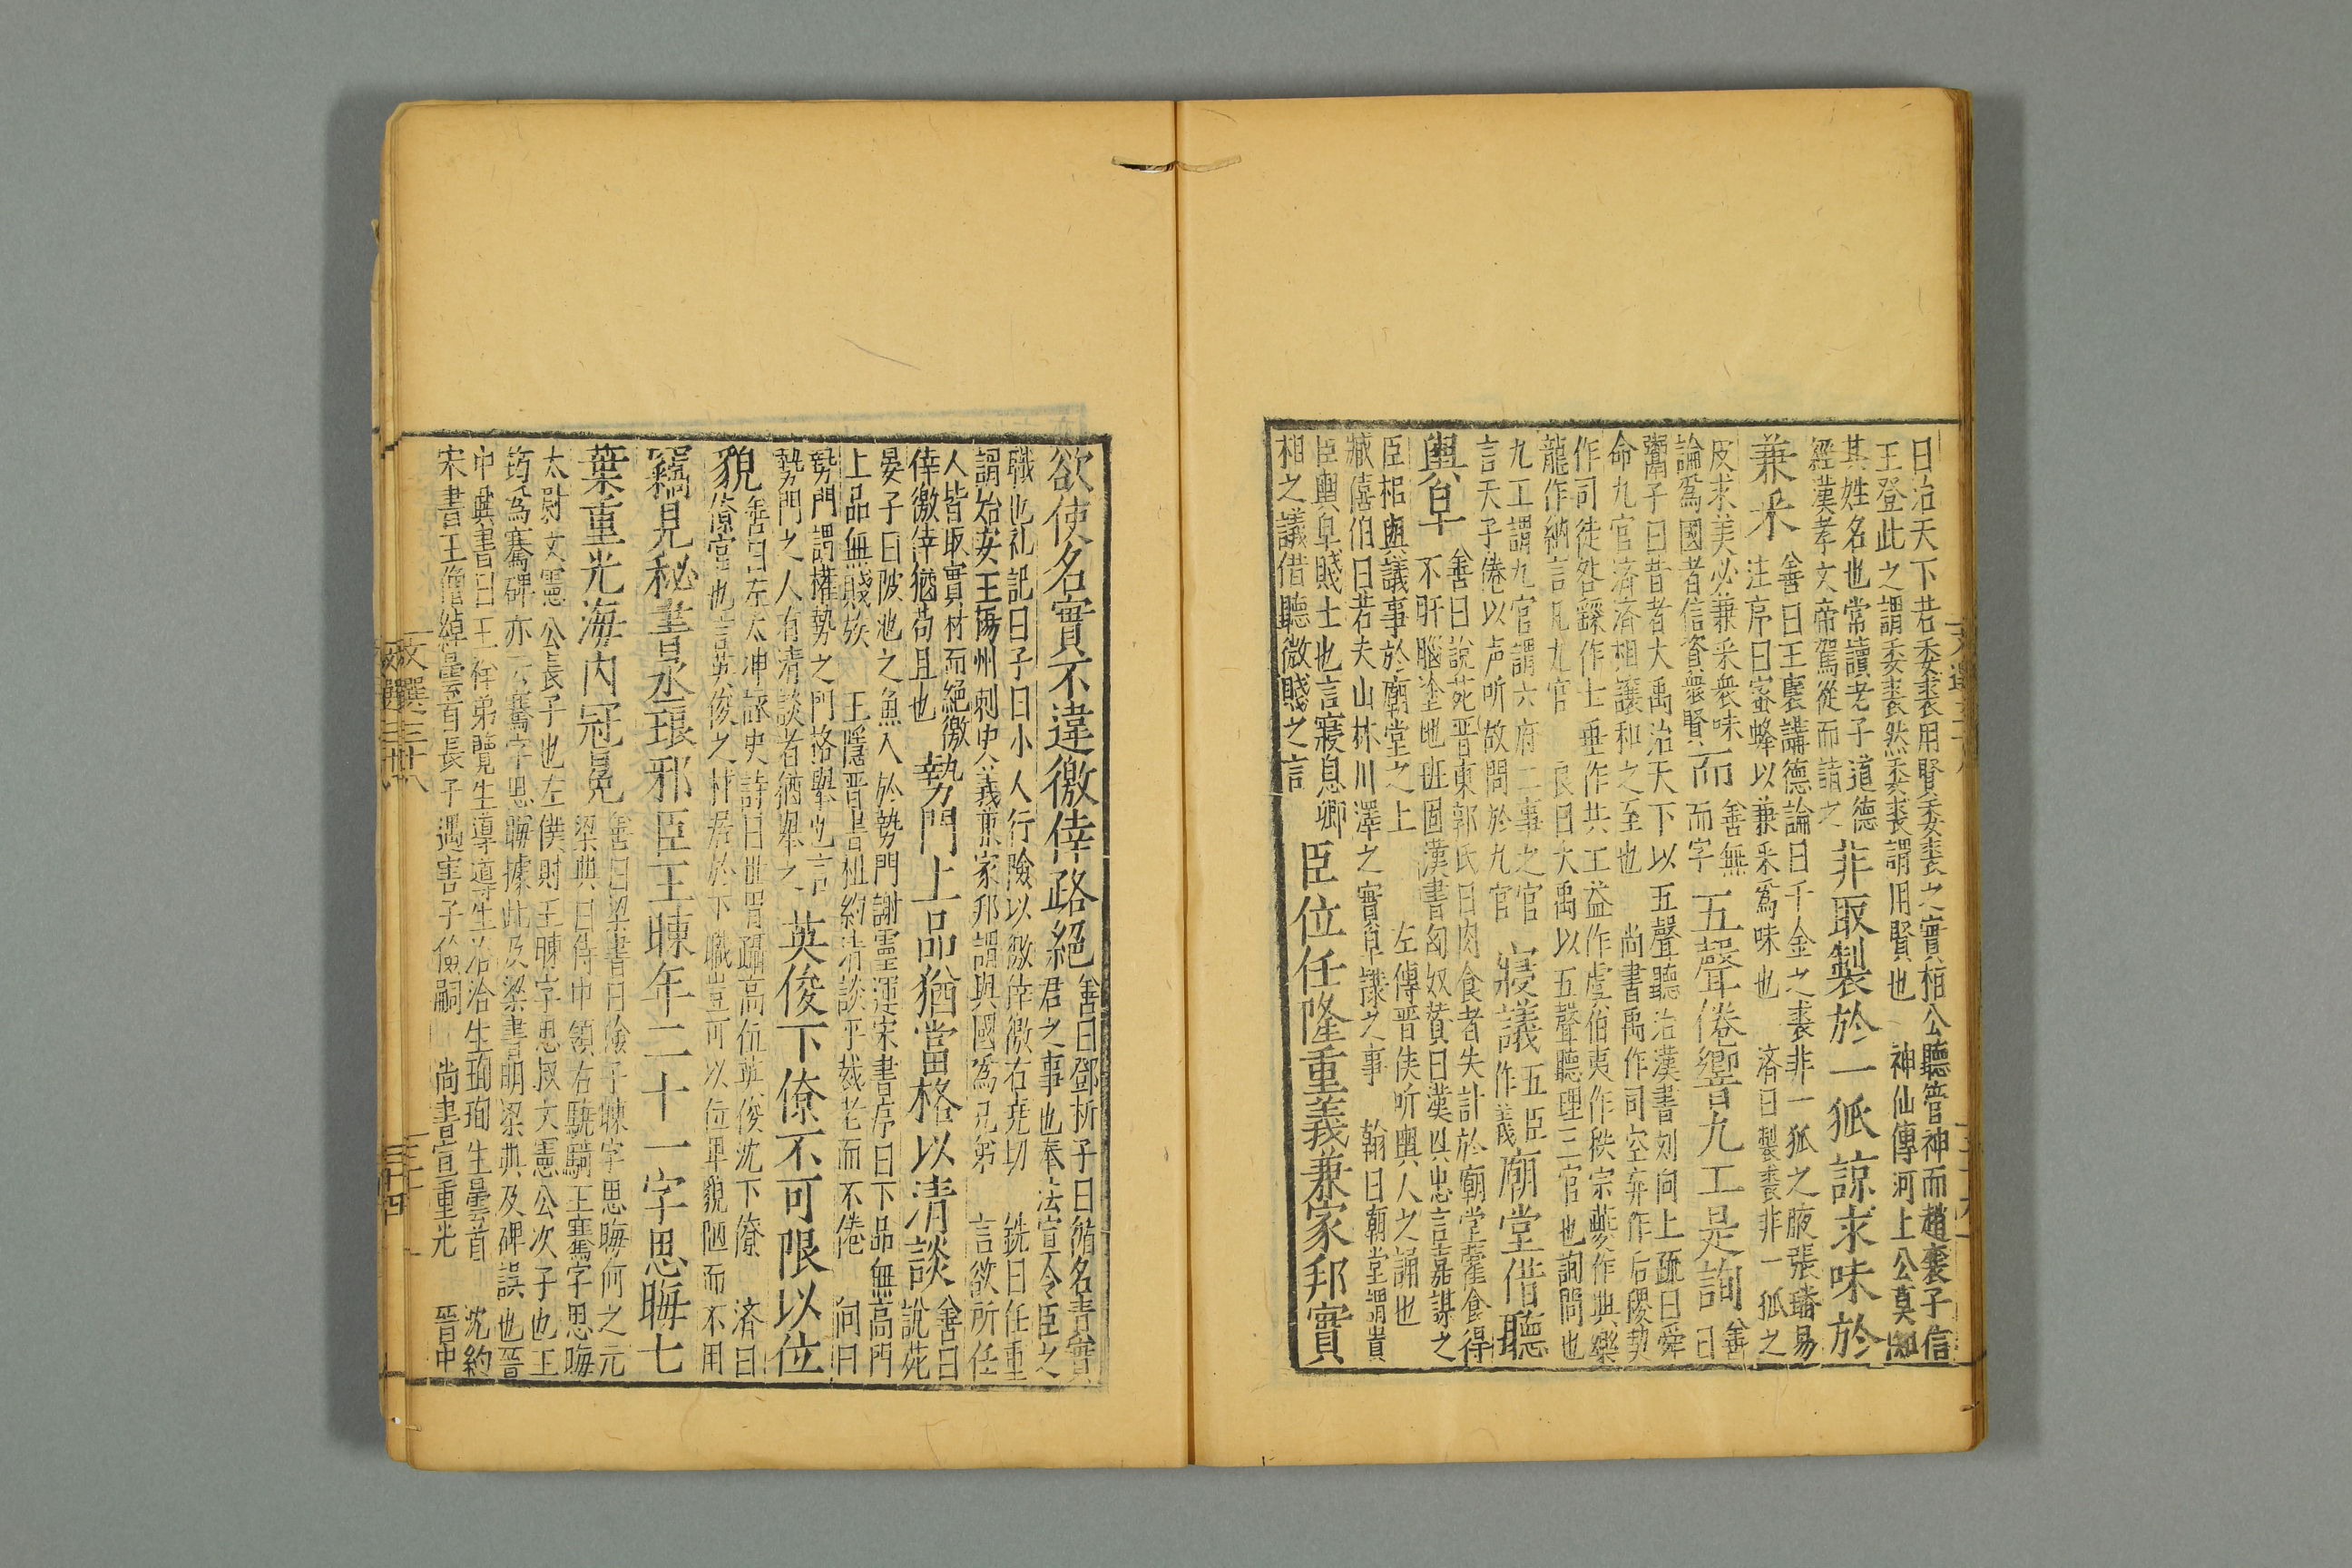 曰治天下若委裘用賢委裘之實栢公聽管神而趙襄子信
王登此之謂委裘然委裘謂用賢也 神仙傳河上公莫知
其姓名也常讀老子道德
經漢孝文帝駕從而詣之
非取製於一狐諒求味於
兼采
善曰王襃講德論曰千金之裘非一狐之腋張璠易
注序曰蜜蜂以兼采爲味也 濟曰製裘非一狐之
皮求美必兼采衆味
論爲國者信資衆賢
而
善無
而字
五聲倦響九工是詢
善
曰
鬻子曰昔者大禹治天下以五聲聽治漢書劉向上疏曰舜
命九官濟濟相讓和之至也 尚書禹作司空弃作后稷契
作司徒咎繇作士垂作共工益作虞伯夷作秩宗夔作典樂
龍作納言凡九官 良曰大禹以五聲聽理三官也詢問也
九工謂九官謂六府三事之官
言天子倦以声所故問於九官
寢議
五臣
作義
廟堂借聽
輿皁
善曰說苑晉東郭氏曰肉食者失計於廟堂藿食得
不肝腦塗地班固漢書匈奴贊曰漢興忠言嘉謀之
臣相與議事於廟堂之上 左傳晉侯听輿人之誦也
臧僖伯曰若夫山林川澤之實皁隸之事 翰曰廟堂謂貴
臣輿皁賤士也言寢息卿
相之議借聽微賤之言
臣位任隆重義兼家邦實
欲使名實不違徼倖路絕
善曰鄧析子曰循名責實
君之事也奉法宣令臣之
職也礼記曰子曰小人行險以徼倖徼右堯切 銑曰任重
謂始安王揚州刺史義兼家邦謂與國爲兄弟 言欲所任
人皆取實材而絕徼
倖徼倖猶苟且也
勢門上品猶當格以清談
善曰
說苑
晏子曰陂池之魚入於勢門謝靈運宋書序曰下品無高門
上品無賤族 王隱晉書祖約清談平裁老而不倦 向曰
勢門謂權勢之門格舉也言
勢門之人有清談者猶舉之
英俊下僚不可限以位
貌
善曰左太冲詠史詩曰世胄躡高位英俊沈下僚 濟曰
僚官也言英俊之材居於下職豈可以位卑貌陋而不用
竊見秘書丞琅邪臣王暕年二十一字思晦七
葉重光海內冠冕
善曰梁書曰儉子暕字思晦何之元
梁典曰侍中領右驍騎王騫字思晦
太尉文憲公長子也左僕射王暕字思寂文憲公次子也王
筠爲騫碑亦云騫字思晦據此及梁書明梁典及碑誤也晉
中興書曰王祥弟覽生導導生洽洽生珣珣生曇首 沈約
宋書王僧綽曇首長子遇害子儉嗣 尚書宣重光 晉中
文選三十八
三十四